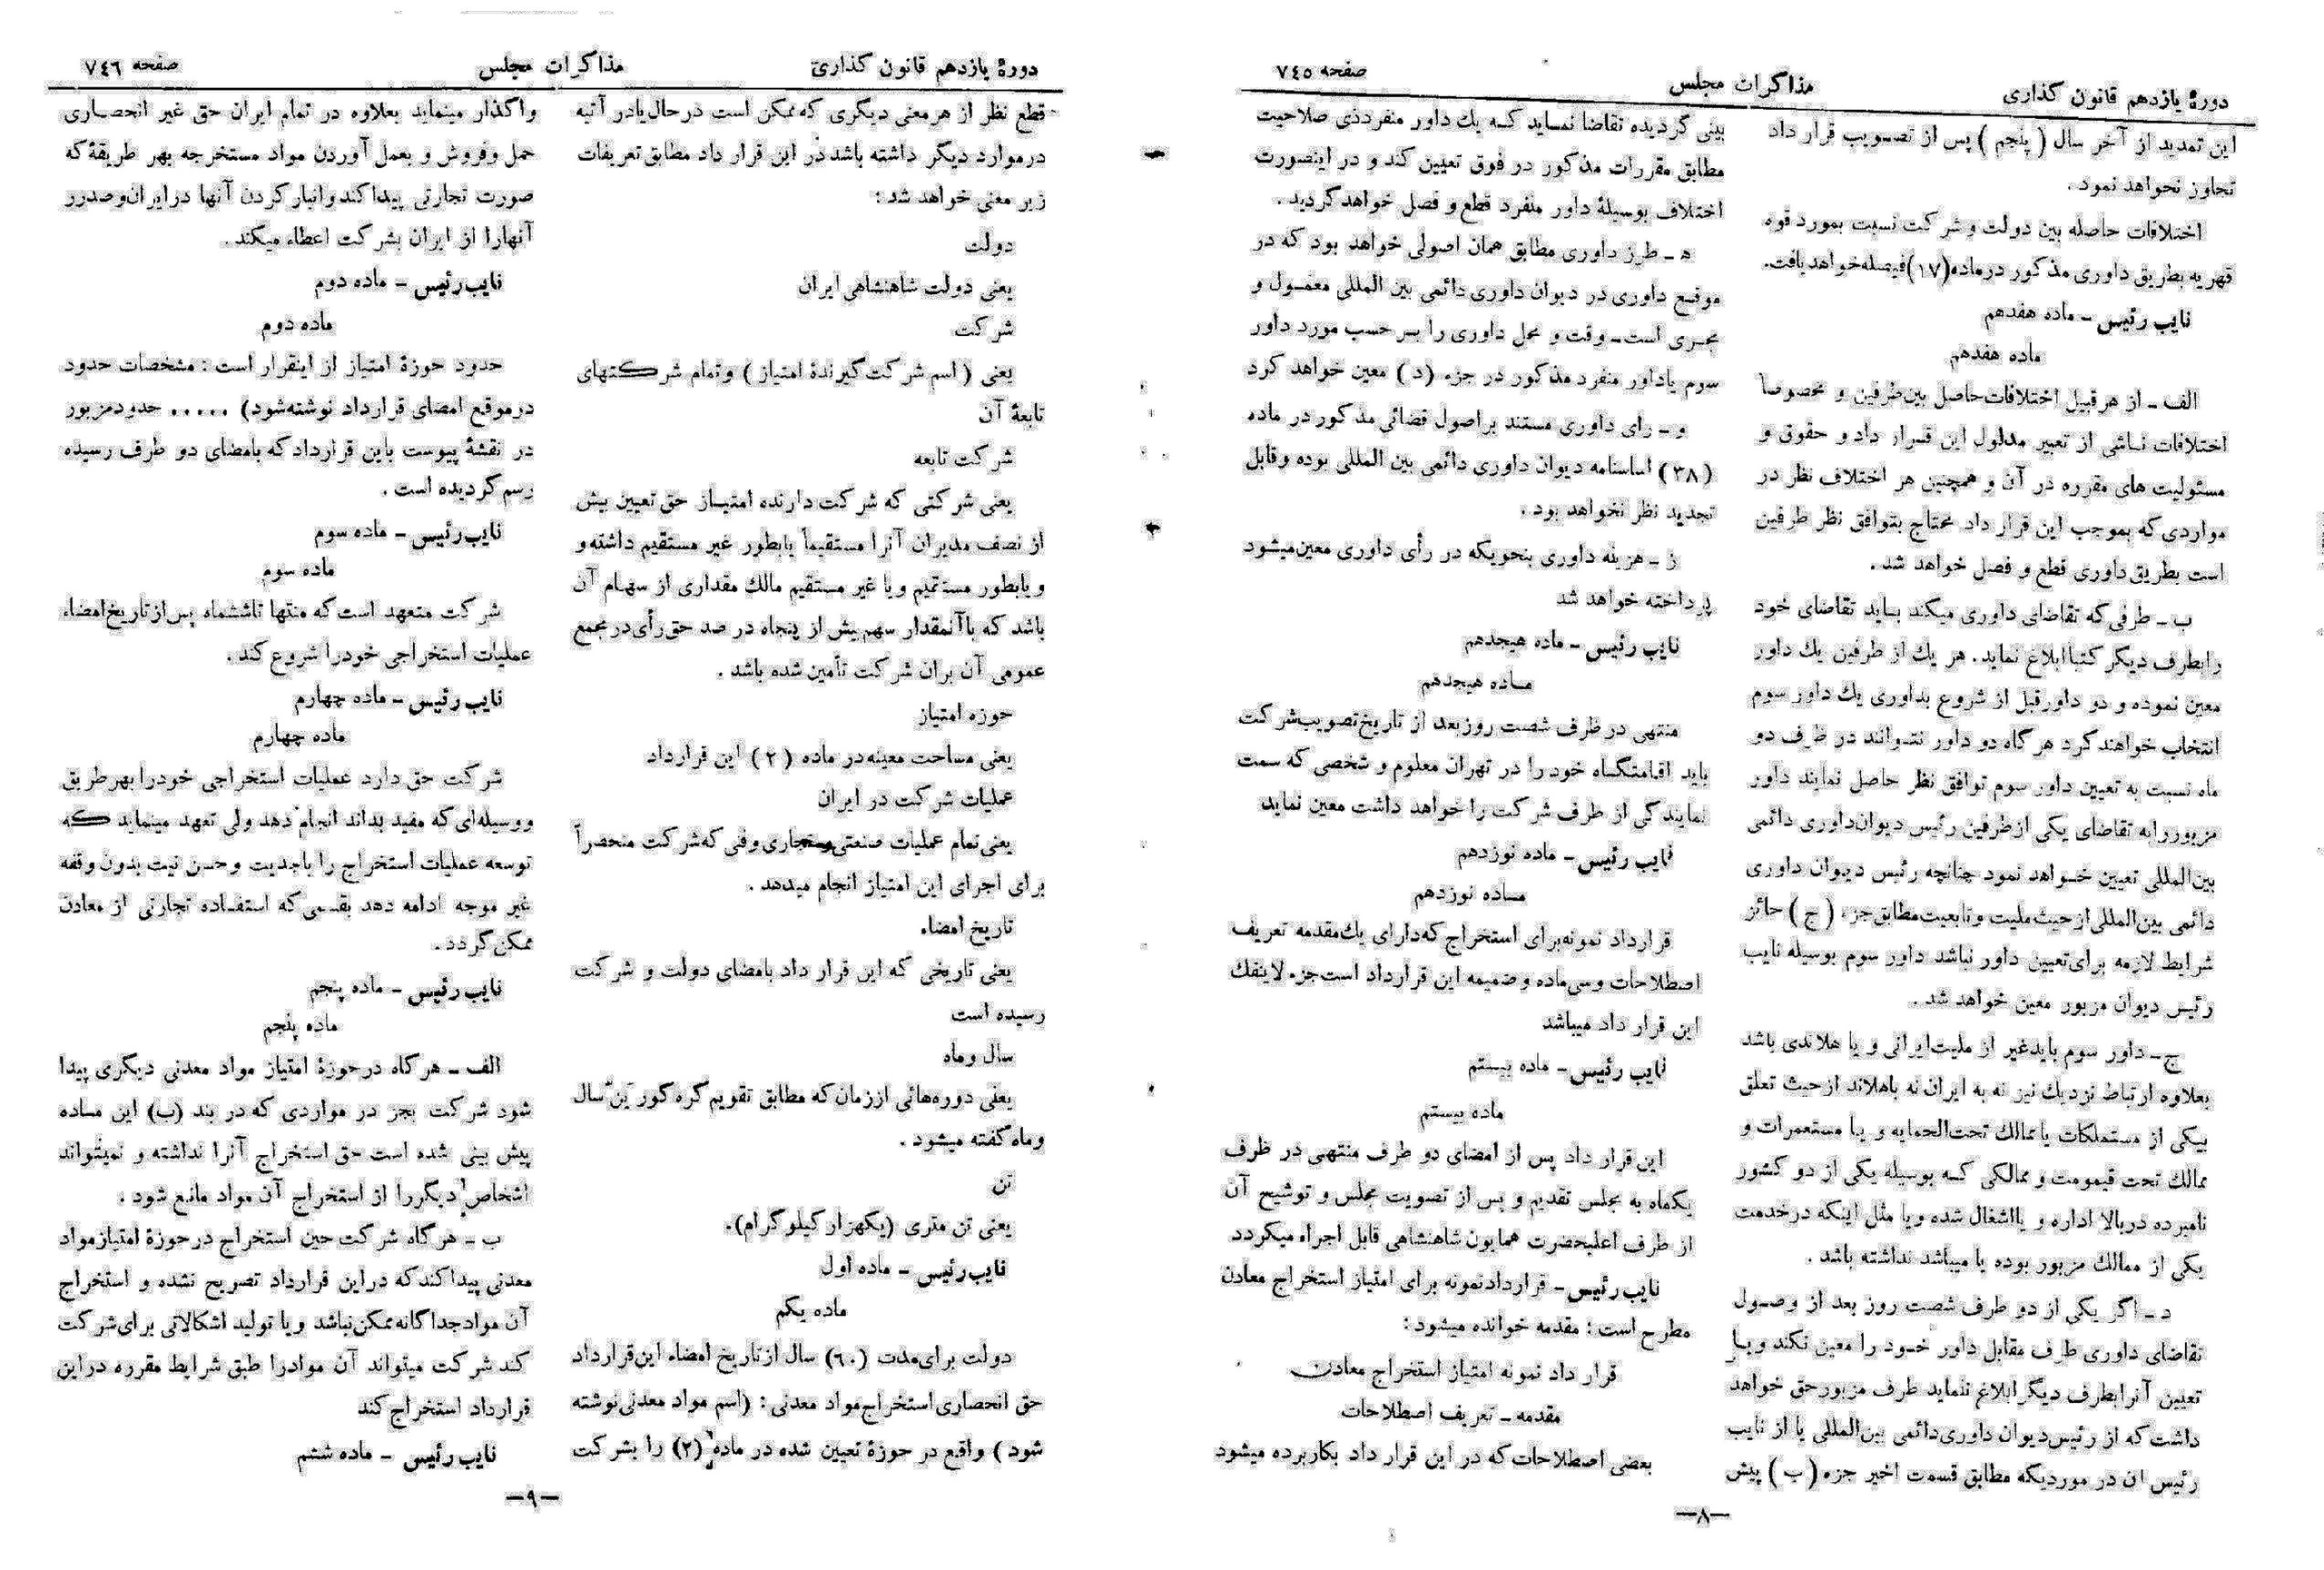 دورهٔ یازدهم قانون گذاری
مذاکرات مجلس
صفحه ۷٤٥
این تمدید از آخر سال ( پنجم ) پس از تصویب قرار داد
تجاوز نخواهد نمود.
اختلافات حاصله بین دولت و شرکت نسبت بمورد قوه
قهریه بطریق داوری مذکور درماده(۱۷)فیصله خواهد یافت.
نایب رئیس ـ ماده هفدهم
ماده هفدهم
الف ـ از هر قبیل اختلافات حاصل بین طرفین و مخصوصاً
اختلافات ناشی از تعبیر مدلول این قرار داد و حقوق و
مسئولیت های مقرره در آن و همچنین هر اختلاف نظر در
مواردی که بموجب این قرار داد محتاج بتوافق نظر طرفین
است بطریق داوری قطع و فصل خواهد شد.
ب ـ طرفی که تقاضای داوری میکند باید تقاضای خود
رابطرف دیگر کتباً ابلاغ نماید. هر یك از طرفین یك داور
معین نموده و دو داور قبل از شروع بداوری یك داور سوم
انتخاب خواهند کرد هر گاه دو داور نتوانند در ظرف دو
ماه نسبت به تعیین داور سوم توافق نظر حاصل نمایند داور
مزبور رابه تقاضای یکی از طرفین رئیس دیوان داوری دائمی
بین المللی تعیین خواهد نمود چنانچه رئیس دیوان داوری
دائمی بین المللی از حیث ملیت و تابعیت مطابق جزء ( ج ) حائز
شرایط لازمه برای تعیین داور نباشد داور سوم بوسیله نایب
رئیس دیوان مزبور معین خواهد شد.
ج ـ داور سوم باید غیر از ملیت ایرانی و یا هلاندی باشد
بعلاوه ارتباط نزدیك نیز نه به ایران نه باهلاند از حیث تعلق
بیکی از مستملکات یا ممالك تحت الحمایه و یا مستعمرات و
ممالك تحت قیمومت و ممالکی که بوسیله یکی از دو کشور
نامبرده دربالا اداره و یا اشغال شده و یا مثل اینکه درخدمت
یکی از ممالك مزبور بوده یا میباشد نداشته باشد.
د ـ اگر یکی از دو طرف شصت روز بعد از وصول
تقاضای داوری طرف مقابل داور خود را معین نکند و یا
تعیین آنرا بطرف دیگر ابلاغ ننماید طرف مزبور حق خواهد
داشت که از رئیس دیوان داوری دائمی بین المللی یا از نایب
رئیس ان در موردیکه مطابق قسمت اخیر جزء ( ب ) پیش
بینی گردیده تقاضا نماید که یك داور منفرد ذی صلاحیت
مطابق مقررات مذکور در فوق تعیین کند و در اینصورت
اختلاف بوسیلهٔ داور منفرد قطع و فصل خواهد گردید.
ه ـ طرز داوری مطابق همان اصولی خواهد بود که در
موقع داوری در دیوان داوری دائمی بین المللی معمول و
مجری است ـ وقت و محل داوری را بر حسب مورد داور
سوم یا داور منفرد مذکور در جزء (د) معین خواهد کرد
و ـ رای داوری مستند بر اصول قضائی مذکور در ماده
(۳۸) اساسنامه دیوان داوری دائمی بین المللی بوده و قابل
تجدید نظر نخواهد بود.
ز ـ هزینه داوری بنحویکه در رأی داوری معین میشود
پرداخته خواهد شد
نایب رئیس ـ ماده هیجدهم
ماده هیجدهم
منتهی در ظرف شصت روز بعد از تاریخ تصویب شرکت
باید اقامتگاه خود را در تهران معلوم و شخصی که سمت
نمایندگی از طرف شرکت را خواهد داشت معین نماید
نایب رئیس ـ ماده نوزدهم
ماده نوزدهم
قرارداد نمونه برای استخراج که دارای یك مقدمه تعریف
اصطلاحات و سی ماده و ضمیمه این قرارداد است جزء لاینفك
این قرار داد میباشد
نایب رئیس ـ ماده بیستم
ماده بیستم
این قرار داد پس از امضای دو طرف منتهی در ظرف
یکماه به مجلس تقدیم و پس از تصویت مجلس و توشیح آن
از طرف اعلیحضرت همایون شاهنشاهی قابل اجراء میگردد
نایب رئیس ـ قرارداد نمونه برای امتیاز استخراج معادن
مطرح است : مقدمه خوانده میشود :
قرار داد نمونه امتیاز استخراج معادن
مقدمه ـ تعریف اصطلاحات
بعضی اصطلاحات که در این قرار داد بکار برده میشود
ـ۸ـ
دورهٔ یازدهم قانون گذاری
مذاکرات مجلس
صفحه ۷٤٦
قطع نظر از هر معنی دیگری که ممکن است درحال یادر آتیه
درموارد دیگر داشته باشد در این قرار داد مطابق تعریفات
زیر معنی خواهد شد :
دولت
یعنی دولت شاهنشاهی ایران
شرکت
یعنی ( اسم شرکت گیرندهٔ امتیاز ) و تمام شرکتهای
تابعهٔ آن
شرکت تابعه
یعنی شرکتی که شرکت دارنده امتیاز حق تعیین بیش
از نصف مدیران آنرا مستقیماً یا بطور غیر مستقیم داشته و
و یا بطور مستقیم و یا غیر مستقیم مالك مقداری از سهام آن
باشد که با آنمقدار سهم بیش از پنجاه در صد حق رأی در مجمع
عمومی آن بران شرکت تأمین شده باشد.
حوزه امتیاز
یعنی مساحت معینه در ماده ( ۲ ) این قرارداد
عملیات شرکت در ایران
یعنی تمام عملیات صنعتی و تجاری و فنی که شرکت منحصراً
برای اجرای این امتیاز انجام میدهد.
تاریخ امضاء
یعنی تاریخی که این قرار داد بامضای دولت و شرکت
رسیده است
سال و ماه
یعنی دوره هائی از زمان که مطابق تقویم گره گورین سال
و ماه گفته میشود.
تن
یعنی تن متری (یکهزار کیلو گرام).
نایب رئیس ـ ماده اول
ماده یکم
دولت برای مدت (٦۰) سال از تاریخ امضاء این قرارداد
حق انحصاری استخراج مواد معدنی : (اسم مواد معدنی نوشته
شود ) واقع در حوزهٔ تعیین شده در ماده (۲) را بشرکت
واگذار مینماید بعلاوه در تمام ایران حق غیر انحصاری
حمل و فروش و بعمل آوردن مواد مستخرجه بهر طریقهٔ که
صورت تجارتی پیدا کند و انبار کردن آنها در ایران و صدرر
آنهارا از ایران بشرکت اعطاء میکند.
نایب رئیس ـ ماده دوم
ماده دوم
حدود حوزهٔ امتیاز از اینقرار است : مشخصات حدود
درموقع امضای قرارداد نوشته شود) ..... حدود مزبور
در نقشهٔ پیوست باین قرارداد که بامضای دو طرف رسیده
رسم گردیده است.
نایب رئیس ـ ماده سوم
ماده سوم
شرکت متعهد است که منتها تا ششماه پس از تاریخ امضاء
عملیات استخراجی خودرا شروع کند.
نایب رئیس ـ ماده چهارم
ماده چهارم
شرکت حق دارد عملیات استخراجی خودرا بهر طریق
و وسیله ای که مفید بداند انجام دهد ولی تعهد مینماید که
توسعه عملیات استخراج را باجدیت و حسن نیت بدون وقفه
غیر موجه ادامه دهد بقسمی که استفاده تجارتی از معادن
ممکن گردد.
نایب رئیس ـ ماده پنجم
ماده پنجم
الف ـ هر گاه درحوزهٔ امتیاز مواد معدنی دیگری پیدا
شود شرکت بجز در مواردی که در بند (ب) این ماده
پیش بینی شده است حق استخراج آنرا نداشته و نمیتواند
اشخاص دیگررا از استخراج آن مواد مانع شود.
ب ـ هر گاه شرکت حین استخراج درحوزهٔ امتیاز مواد
معدنی پیدا کند که دراین قرارداد تصریح نشده و استخراج
آن مواد جدا گانه ممکن نباشد و یا تولید اشکالاتی برای شرکت
کند شرکت میتواند آن موادرا طبق شرایط مقرره دراین
قرارداد استخراج کند
نایب رئیس ـ ماده ششم
ـ۹ـ